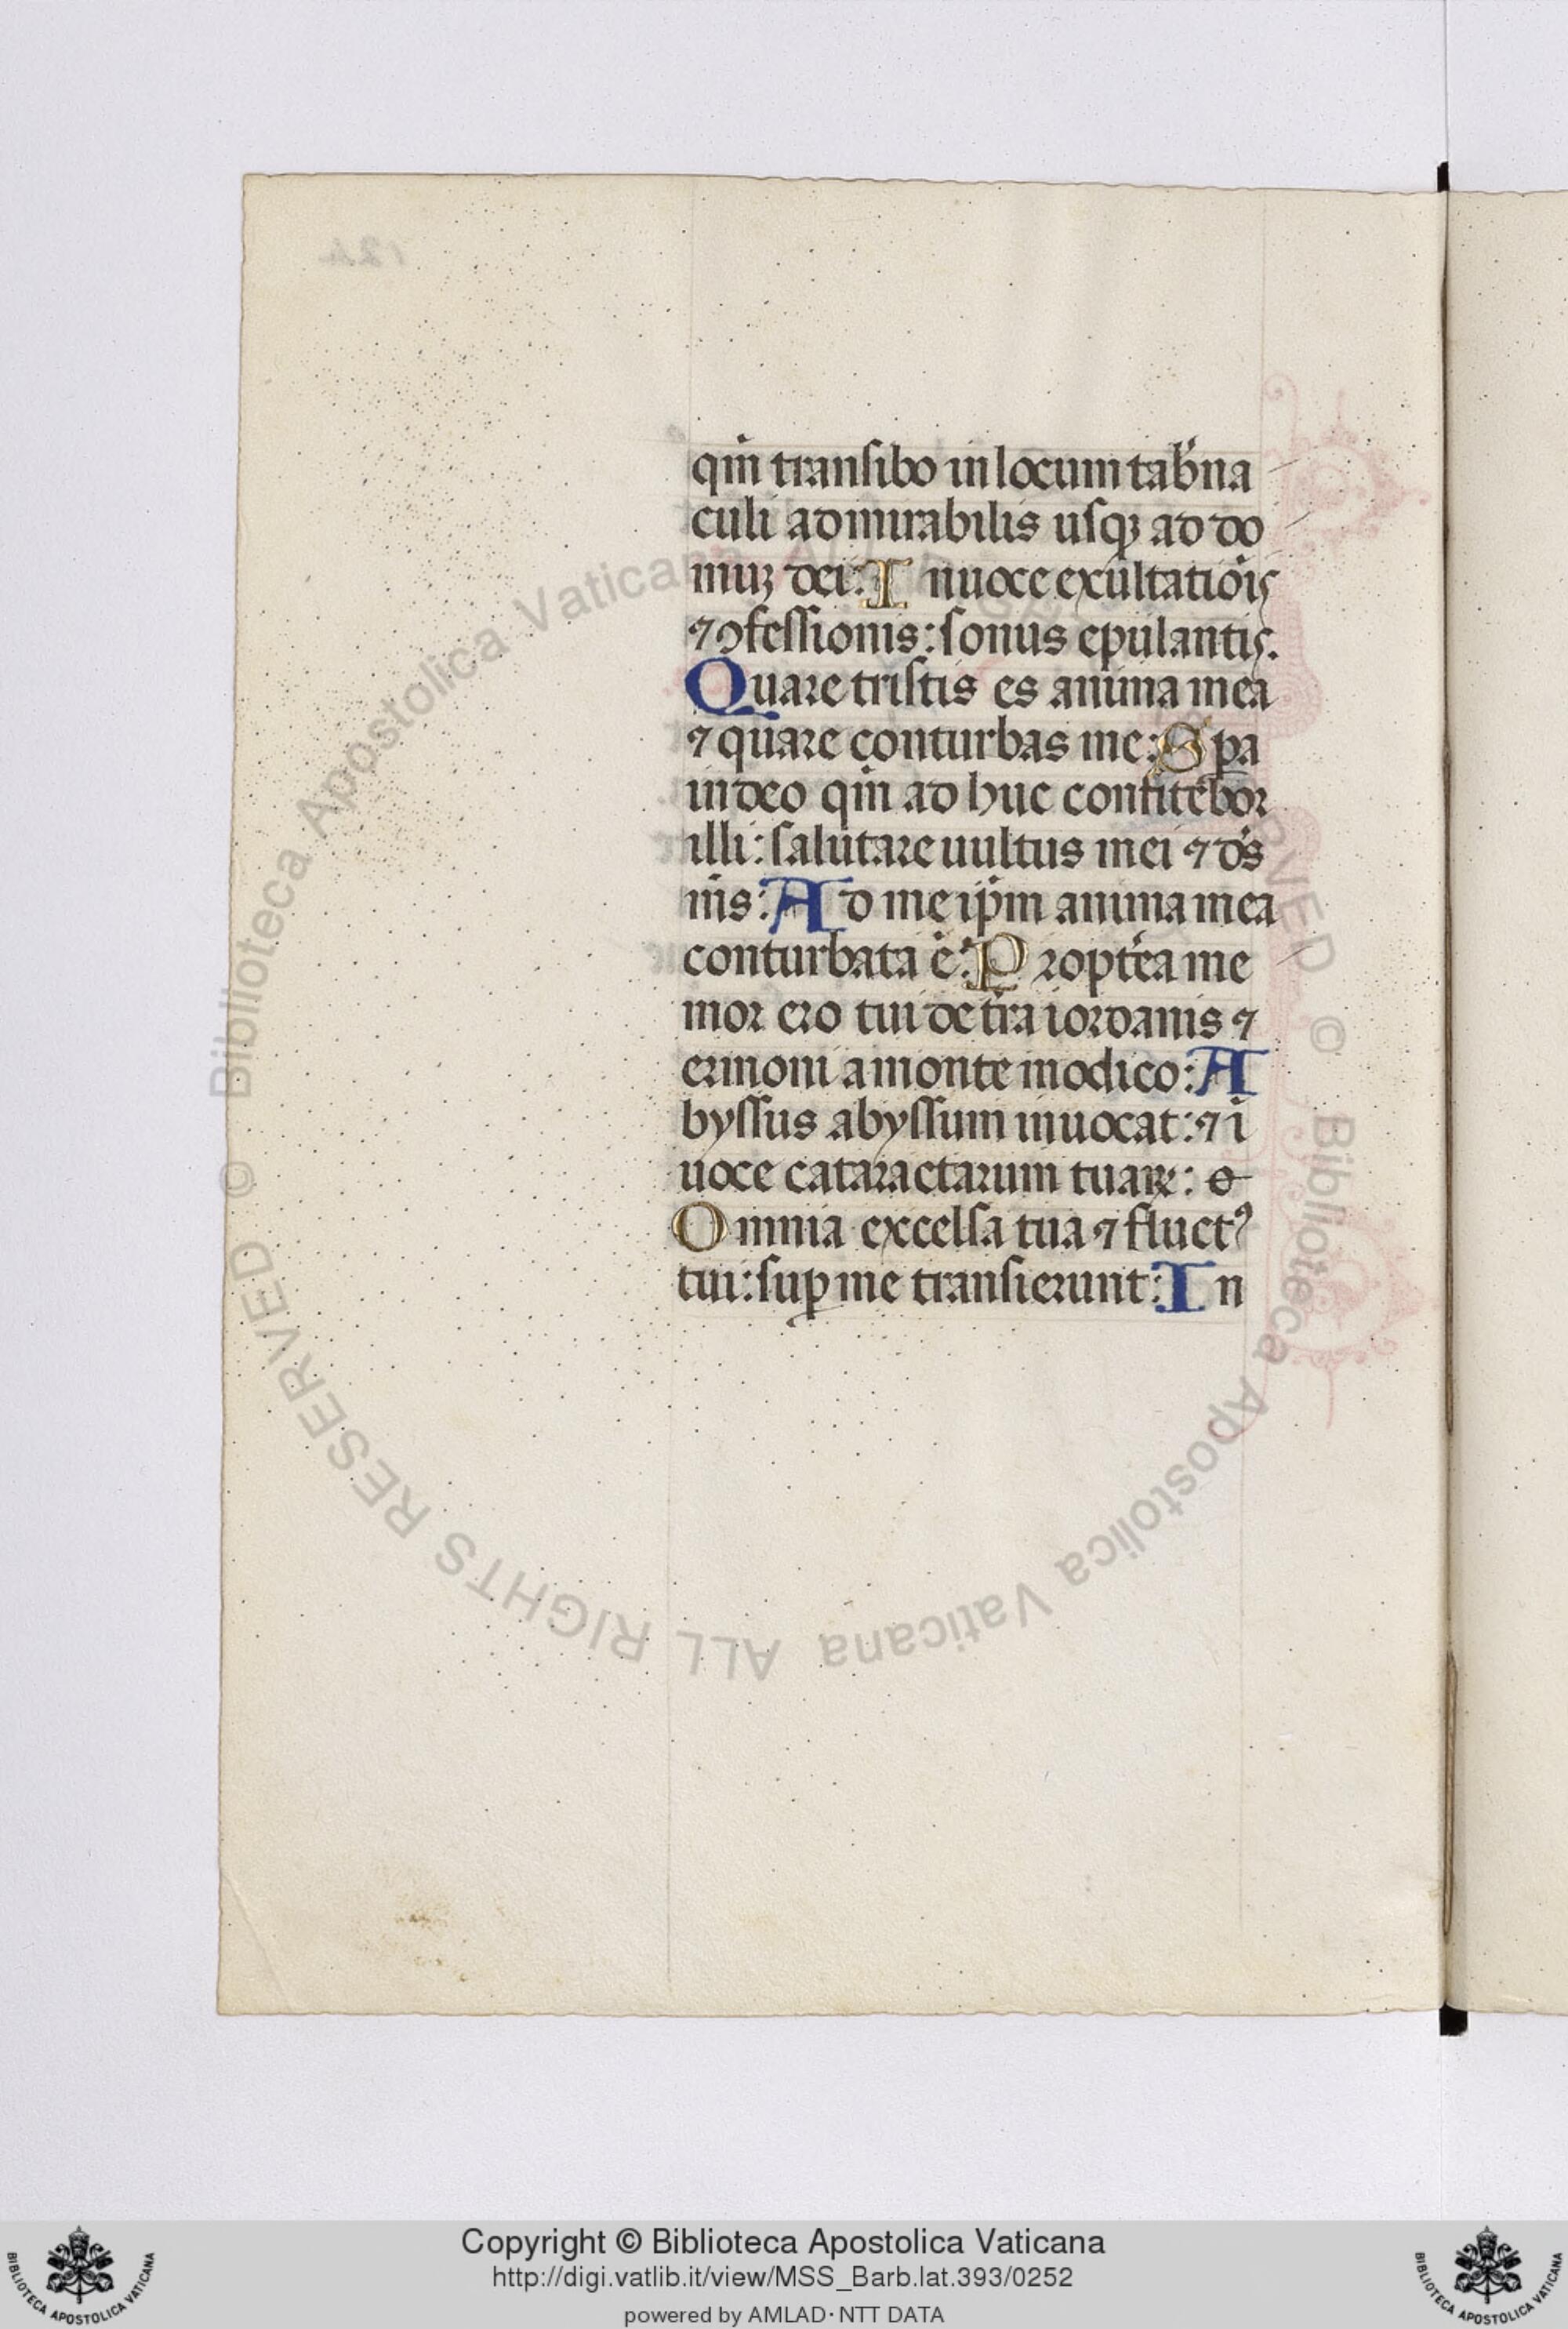 qm̄ transibo in locum tab̄na
culi admirabilis usqꝫ ad do
muꝫ dei: I n uoce exultatiōis
⁊ ꝯfessionis: sonus epulantis.
Quare tristis es anima mea
⁊ quare conturbas me: Spa
in deo qm̄ ad huc confitebor
illi: salutare uultus mei ⁊ ds̄
ms̄: Ad me ip̄m anima mea
conturbata ē: Propt̄ea me
mor ero tui de tr̄a iordanis ⁊
ermoni a monte modico: A
byssus abyssum inuocat: ⁊ ī
uoce cataractarum tuaꝝ:
Omnia excelsa tua ⁊ fluctꝰ
tui: suꝑ me transierunt: In
© Biblioteca Apostolica Vaticana ALL RIGHTS RESERVED © Biblioteca Apostolica Vaticana ALL RIGHTS RESERVED
Copyright © Biblioteca Apostolica Vaticana
http://digi.vatlib.it/view/MSS_Barb.lat.393/0252
powered by AMLAD·NTT DATA
BIBLIOTECA APOSTOLICA VATICANA
BIBLIOTECA APOSTOLICA VATICANA